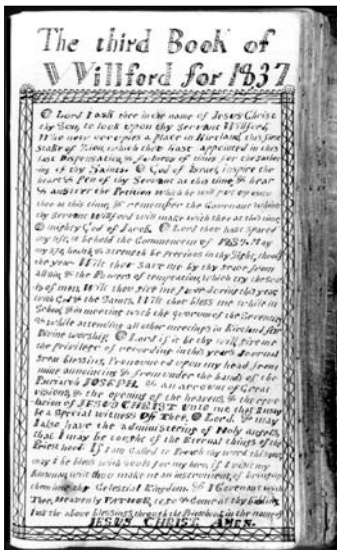 The third Book of
Willford for 1837
O Lord I ask thee in the name of Jesus Christ
thy Son, to look upon thy Servant Willford,
Who now occupies a place in Kirtland this first
Stake of Zion, which thou hast appointed in this
last Dispensation & fulness of times for the gather
ing of thy Saints. O God of Israel inspire the
heart & pen of thy Servant at this time, & hear
& answer the Petition which he will put up unto
thee at this time, & remember the Covenant which
thy Servant Willford will make with thee at this time
O mighty God of Jacob. O Lord thou hast spared
my life, to behold the Commencem of 1837. May
my life, health & strength be precious in thy sight, through
the year. Wilt thou save me by thy power from
all sin, & the Powers of temptation which try the Souls
of men. Wilt thou give me favor during this year
with God & the Saints. Wilt thou bless me while in
School, & in meeting with the quorum of the Seventies
& while attending all other meetings in Kirtland for
Divine worship. O Lord if it be thy will give me
the privilege of recording in this years Journal
great blessings, Pronounced upon my head from
mine annointing & from under the hands of the
Patriarch JOSEPH & an account of Great
visions, & the opening of the heavens, & the reve
lation of JESUS CHRIST unto me that I may
be a Special witness Of Thee, O Lord. & may
I also have the administering of Holy angels,
that I may be taught of the Eternal things of the
Priesthood. If I am Called to Preach thy word this year,
may I be bless with souls for my hire, if I visit my
Kinsman, wilt thou make me an instrument, of bringing
them into thy Celestial Kingdom. & I Covenant with
Thee, Heavenly FATHER, to
Put the above blessings, through the Priesthood in the name of
JESUS CHRIST AMEN.